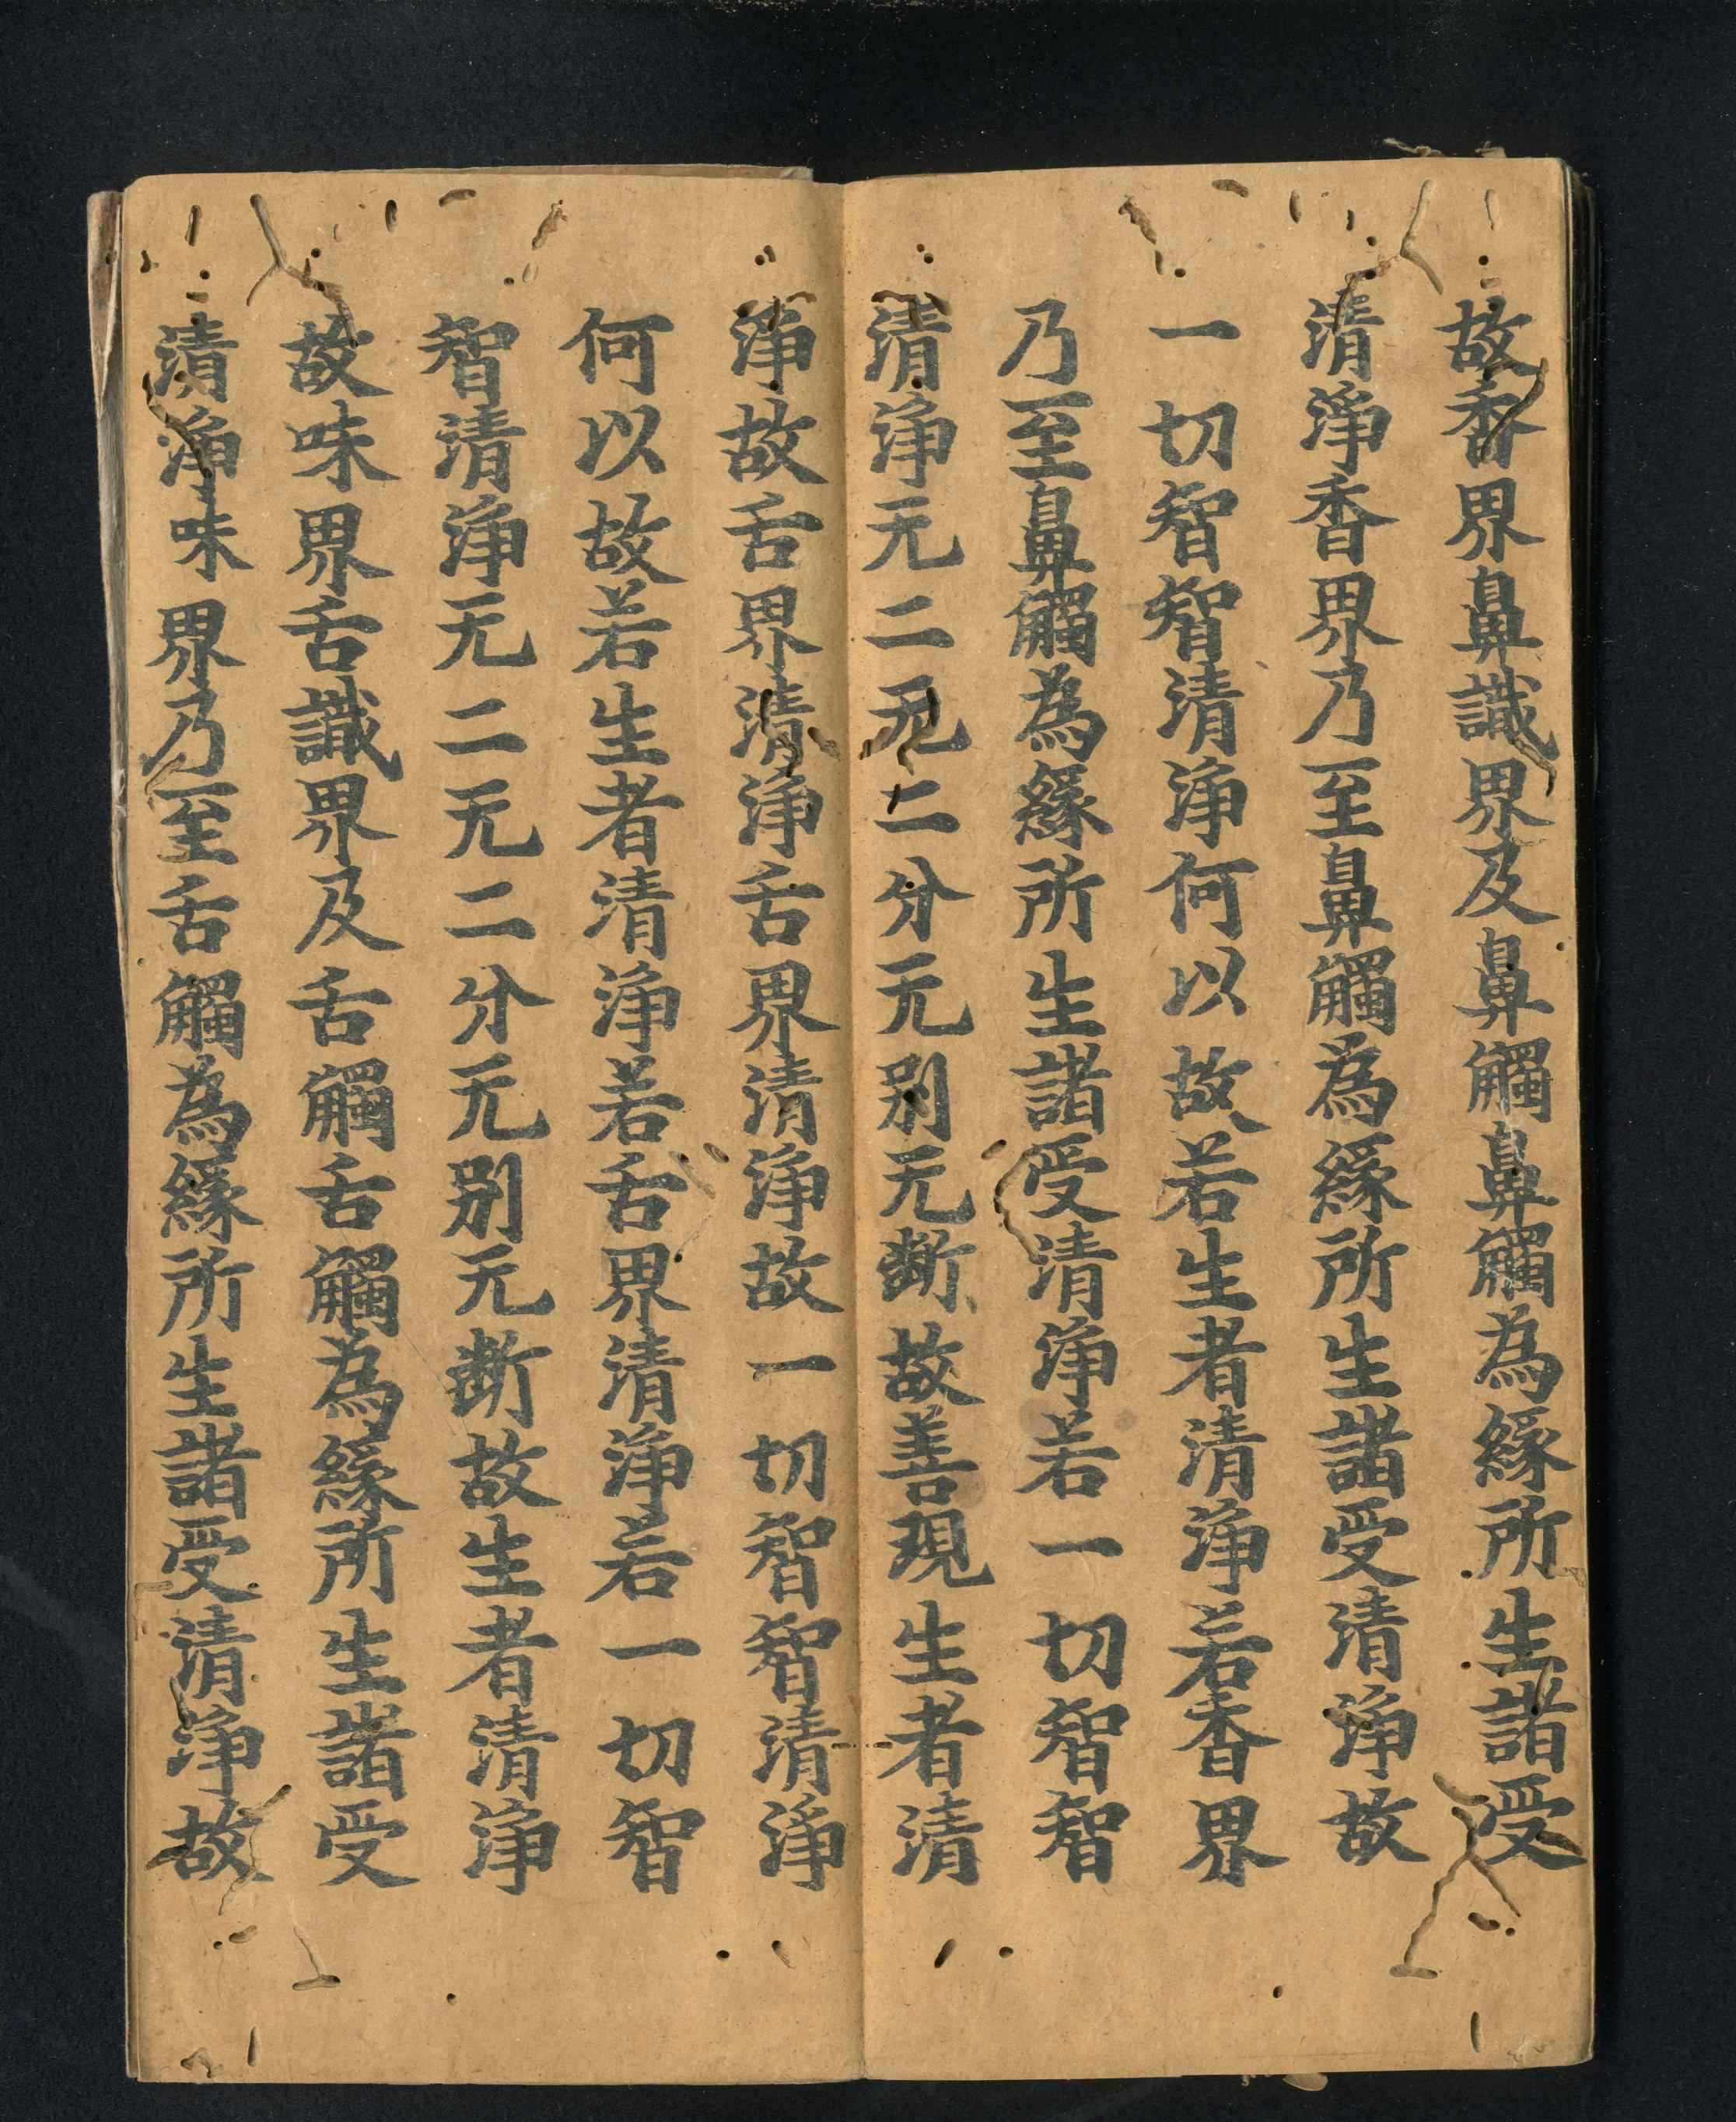 故香界鼻識界及鼻觸鼻觸為緣所生諸受
清淨香界乃至鼻觸為緣所生諸受清淨故
一切智智清淨何以故若生者清淨若香界
乃至鼻觸為緣所生諸受清淨若一切智智
清淨无二无二分无別无斷故善現生者清
淨故舌界清淨舌界清淨故一切智智清淨
何以故若生者清淨若舌界清淨若一切智
智清淨无二无二分无別无斷故生者清淨
故味界舌識界及舌觸舌觸為緣所生諸受
清淨味界乃至舌觸為緣所生諸受清淨故